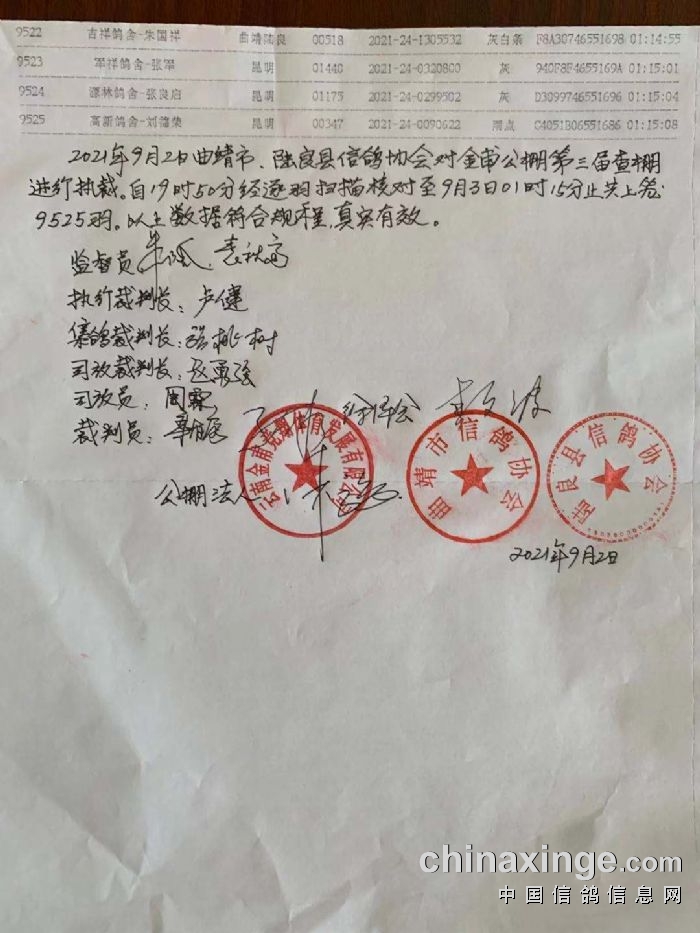 9522 吉祥鸽舍-朱国祥 曲靖陆良 00518 2021-24-1305532 灰白条 F8A30746551698 01:14:55
9523 军祥鸽舍-张军 昆明 01440 2021-24-0320800 灰 940F8F4655169A 01:15:01
9524 源林鸽舍-张良启 昆明 01175 2021-24-0299502 灰 D3099746551696 01:15:04
9525 高新鸽舍-刘德荣 昆明 00347 2021-24-0090622 雨点 C4051B06551686 01:15:08
2021年9月2日曲靖市、陆良县信鸽协会对金甫公棚第三届查棚
进行执裁。自19时50分经逐羽扫描核对至9月3日01时15分止共上卷
9525羽。以上数据符合规程,真实有效。
监督员
执行裁判长:卢健
集鸽裁判长:张桃树
司放裁判长:赵勇强
司放员:周霖
裁判员:
公棚法人:
云南金甫竞翔体育发展有限公司
曲靖市信鸽协会
陆良县信鸽协会
2021年9月2日
chinaxinge.com
中国信鸽信息网